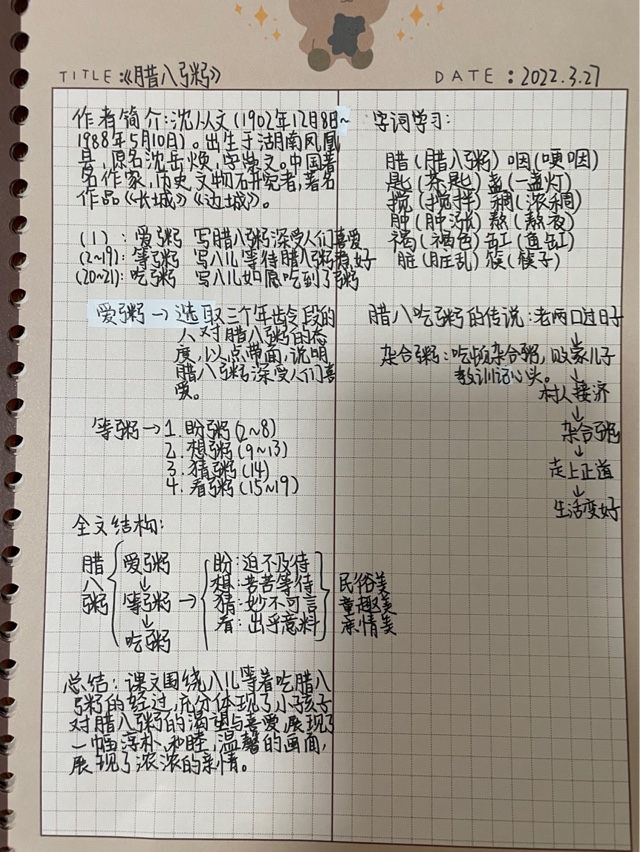 TITLE:《腊八粥》
DATE:2022.3.27
作者简介:沈从文(1902年12月8日~
1988年5月10日)。出生于湖南凤凰
县,原名沈岳焕,字崇文。中国著
名作家,历史文物研究者,著名
作品《长城》《边城》。
(1):爱粥 写腊八粥深受人们喜爱
(2~19):等粥 写八儿等待腊八粥熬好
(20~21):吃粥 写八儿如愿吃到了粥
爱粥→选取三个年龄段的
人对腊八粥的态
度,以点带面,说明
腊八粥深受人们喜
爱。
等粥→1.盼粥(2~8)
2.想粥(9~13)
3.猜粥(14)
4.看粥(15~19)
全文结构:
腊八粥
爱粥
↓
等粥→
↓
吃粥
盼:迫不及待
想:苦苦等待
猜:妙不可言
看:出乎意料
民俗美
童趣美
亲情美
总结:课文围绕八儿等着吃腊八
粥的经过,充分体现了小孩子
对腊八粥的渴望与喜爱,展现了
一幅淳朴,和睦,温馨的画面,
展现了浓浓的亲情。
字词学习:
腊(腊八粥)咽(哽咽)
匙(茶匙)盏(一盏灯)
搅(搅拌)稠(浓稠)
肿(肿胀)熬(熬夜)
褐(褐色)缸(鱼缸)
脏(脏乱)筷(筷子)
腊八吃粥的传说:老两口过日子
杂合粥:吃中杂合粥,败家儿子
教训记心头。↓
村人接济
↓
杂合粥
↓
走上正道
↓
生活变好